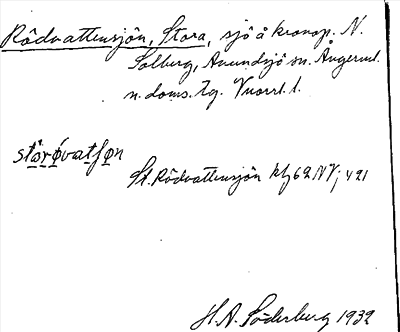 Rödvattensjön, Stora, sjö å kronop. N.
Solberg, Anundsjö sn. Ångerml.
n. doms. lg. Vnorrl. l.
stårǿvatſøn
St. Rödvattensjön kbl 62 NV; 421
H.A. Söderberg 1932